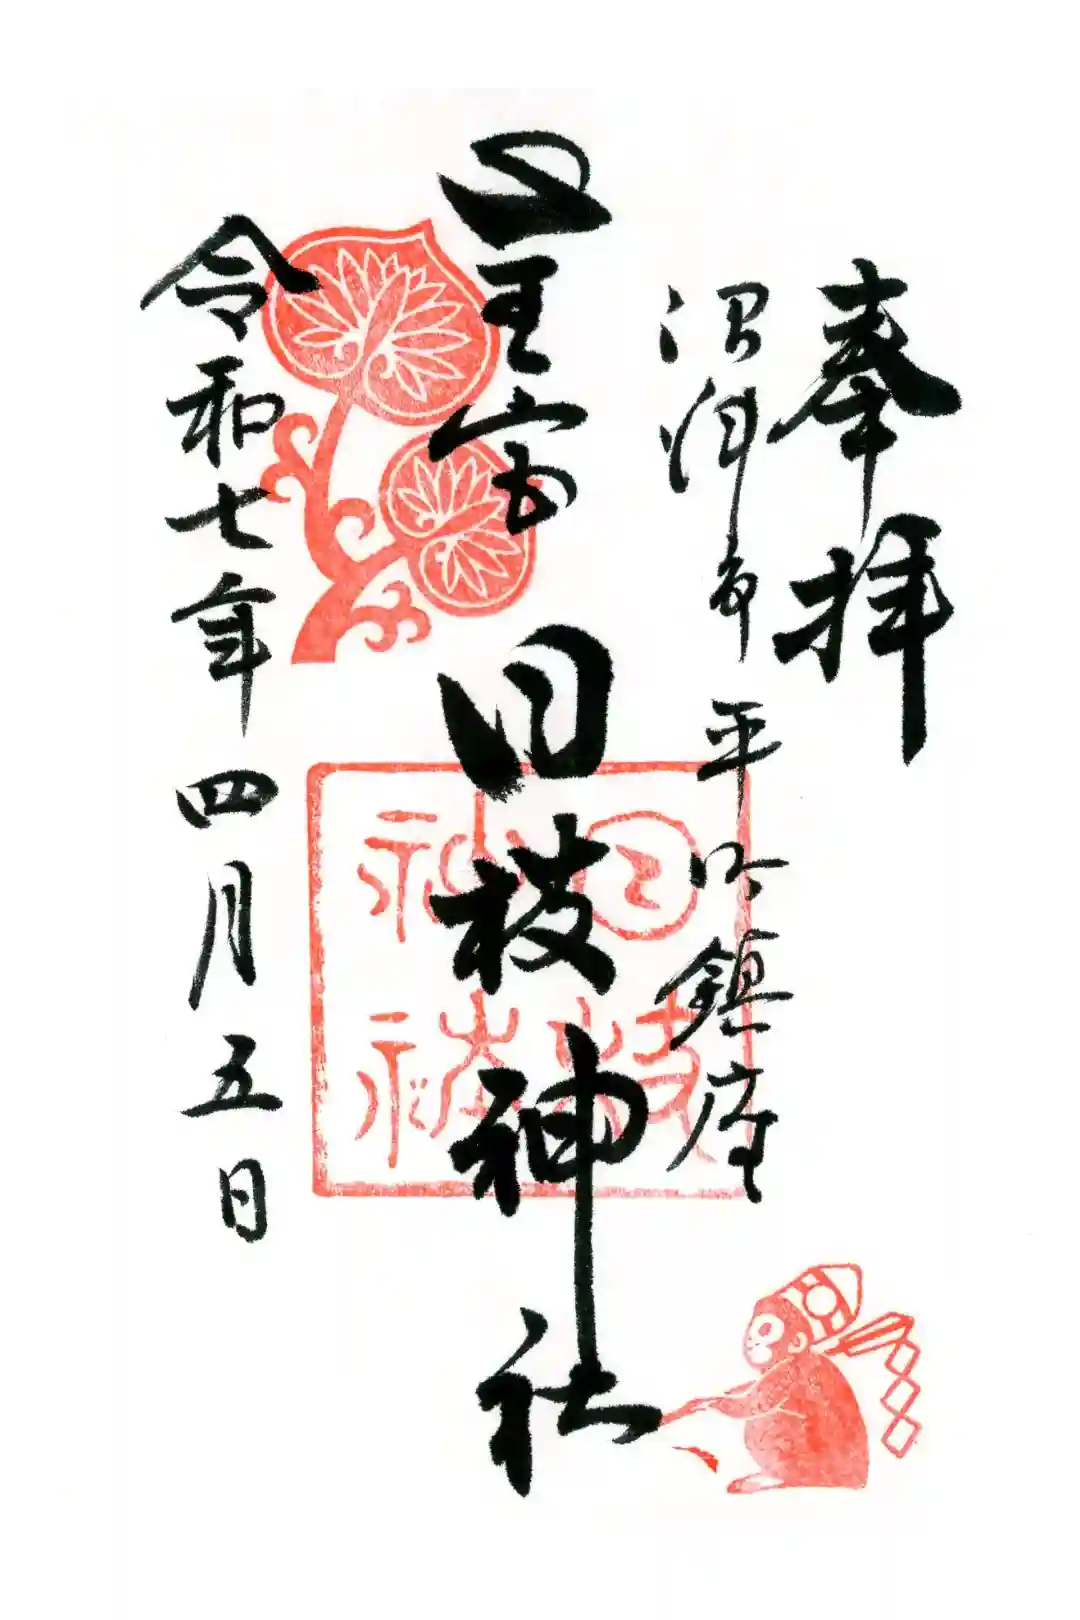 奉拝
沼津市平町鎮座
山王宮 日枝神社
令和七年四月五日
日枝
神社